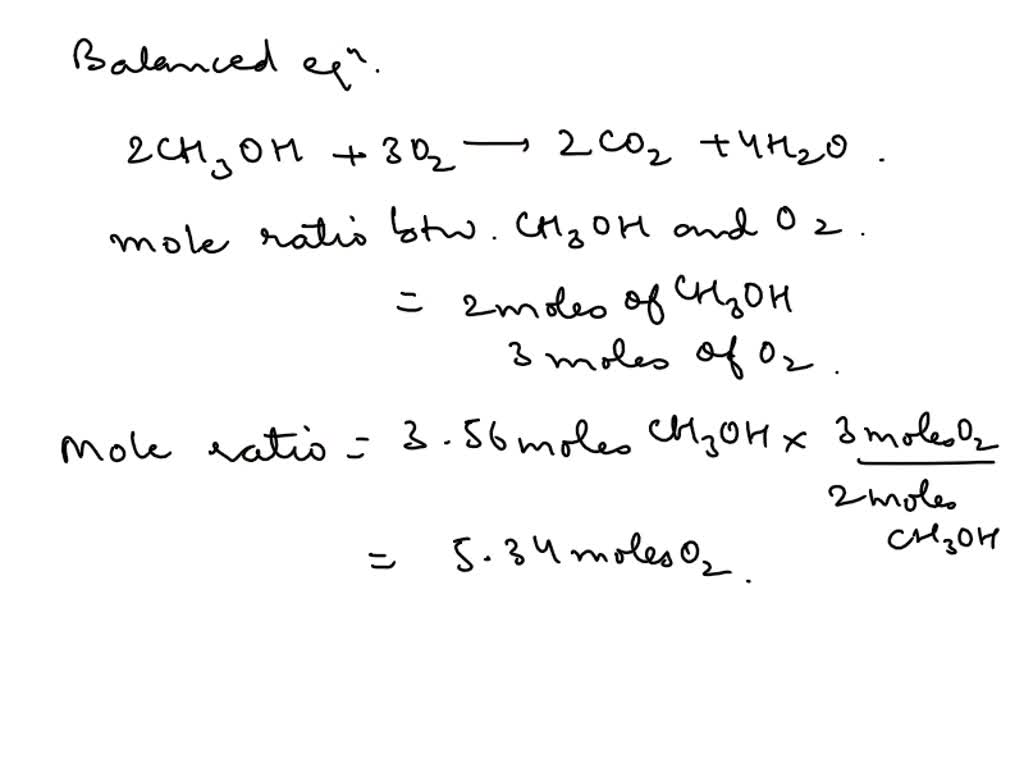 Balanced eqⁿ.
2CH₃OH + 3O₂ → 2CO₂ + 4H₂O.
mole ratio btw. CH₃OH and O₂.
= 2 moles of CH₃OH
3 moles of O₂.
Mole ratio = 3.56 moles CH₃OH × 3 moles O₂
2 moles
CH₃OH
= 5.34 moles O₂.